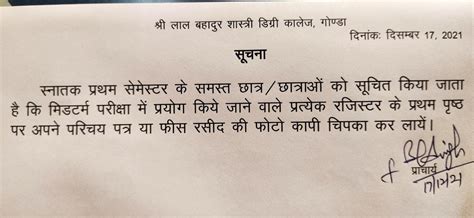 श्री लाल बहादुर शास्त्री डिग्री कालेज, गोण्डा
दिनांकः दिसम्बर 17, 2021
सूचना
स्नातक प्रथम सेमेस्टर के समस्त छात्र/छात्राओं को सूचित किया जाता
है कि मिडटर्म परीक्षा में प्रयोग किये जाने वाले प्रत्येक रजिस्टर के प्रथम पृष्ठ
पर अपने परिचय पत्र या फीस रसीद की फोटो कापी चिपका कर लायें।
BPSingh
प्राचार्य
17/12/21